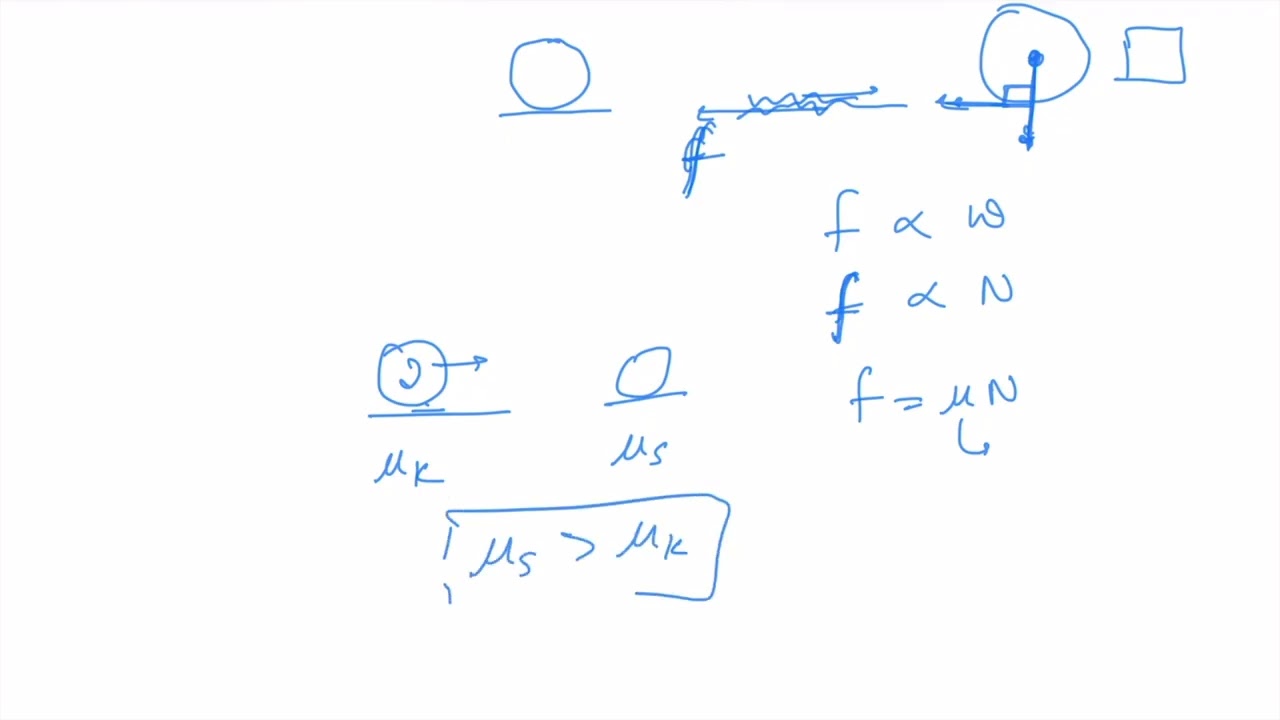 f
f ∝ w
f ∝ N
f = μN
μk
μs
μs > μk